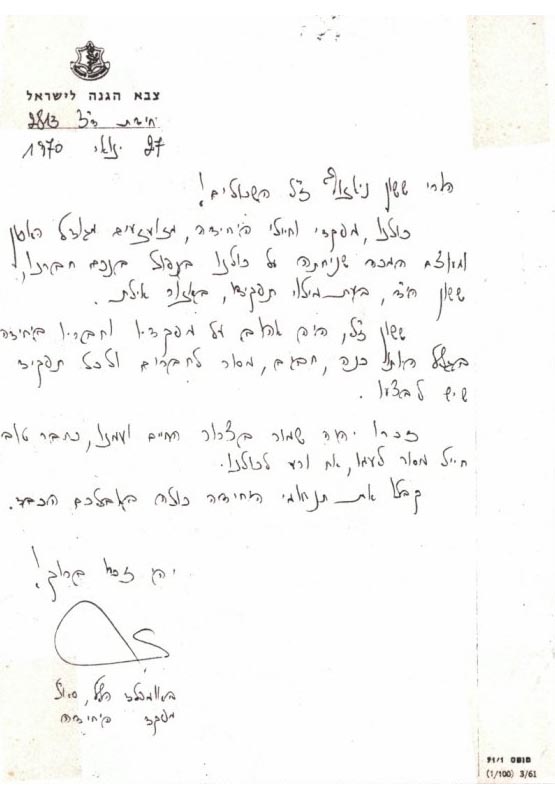 צבא הגנה לישראל
יחידת ד"צ 2813
27 ינואר 1970
הורי ששון ז"ל השכולים!
כולנו, מפקדי וחיילי היחידה, מזועזעים מגודל האסון
ומעוצם המכה שניחתה על כולנו בנפול בנכם חברנו,
ששון הי"ד, בעת מילוי תפקידו, באזור אילת.
ששון ז"ל, היה אהוב על מפקדיו וחבריו ביחידה
בגלל היותו כנה, חביב, מסור לחברים ולכל תפקיד
שיש לבצעו.
זכרו יהיה שמור בצרור החיים ועמנו, כחבר טוב
חייל מסור לעמו, אח ורע לכולנו.
קבלו את תנחומי היחידה כולה באבלכם הכבד.
יהי זכרו ברוך!
סרן
מפקד היחידה
טופס 71/1
(1/100) 3/61